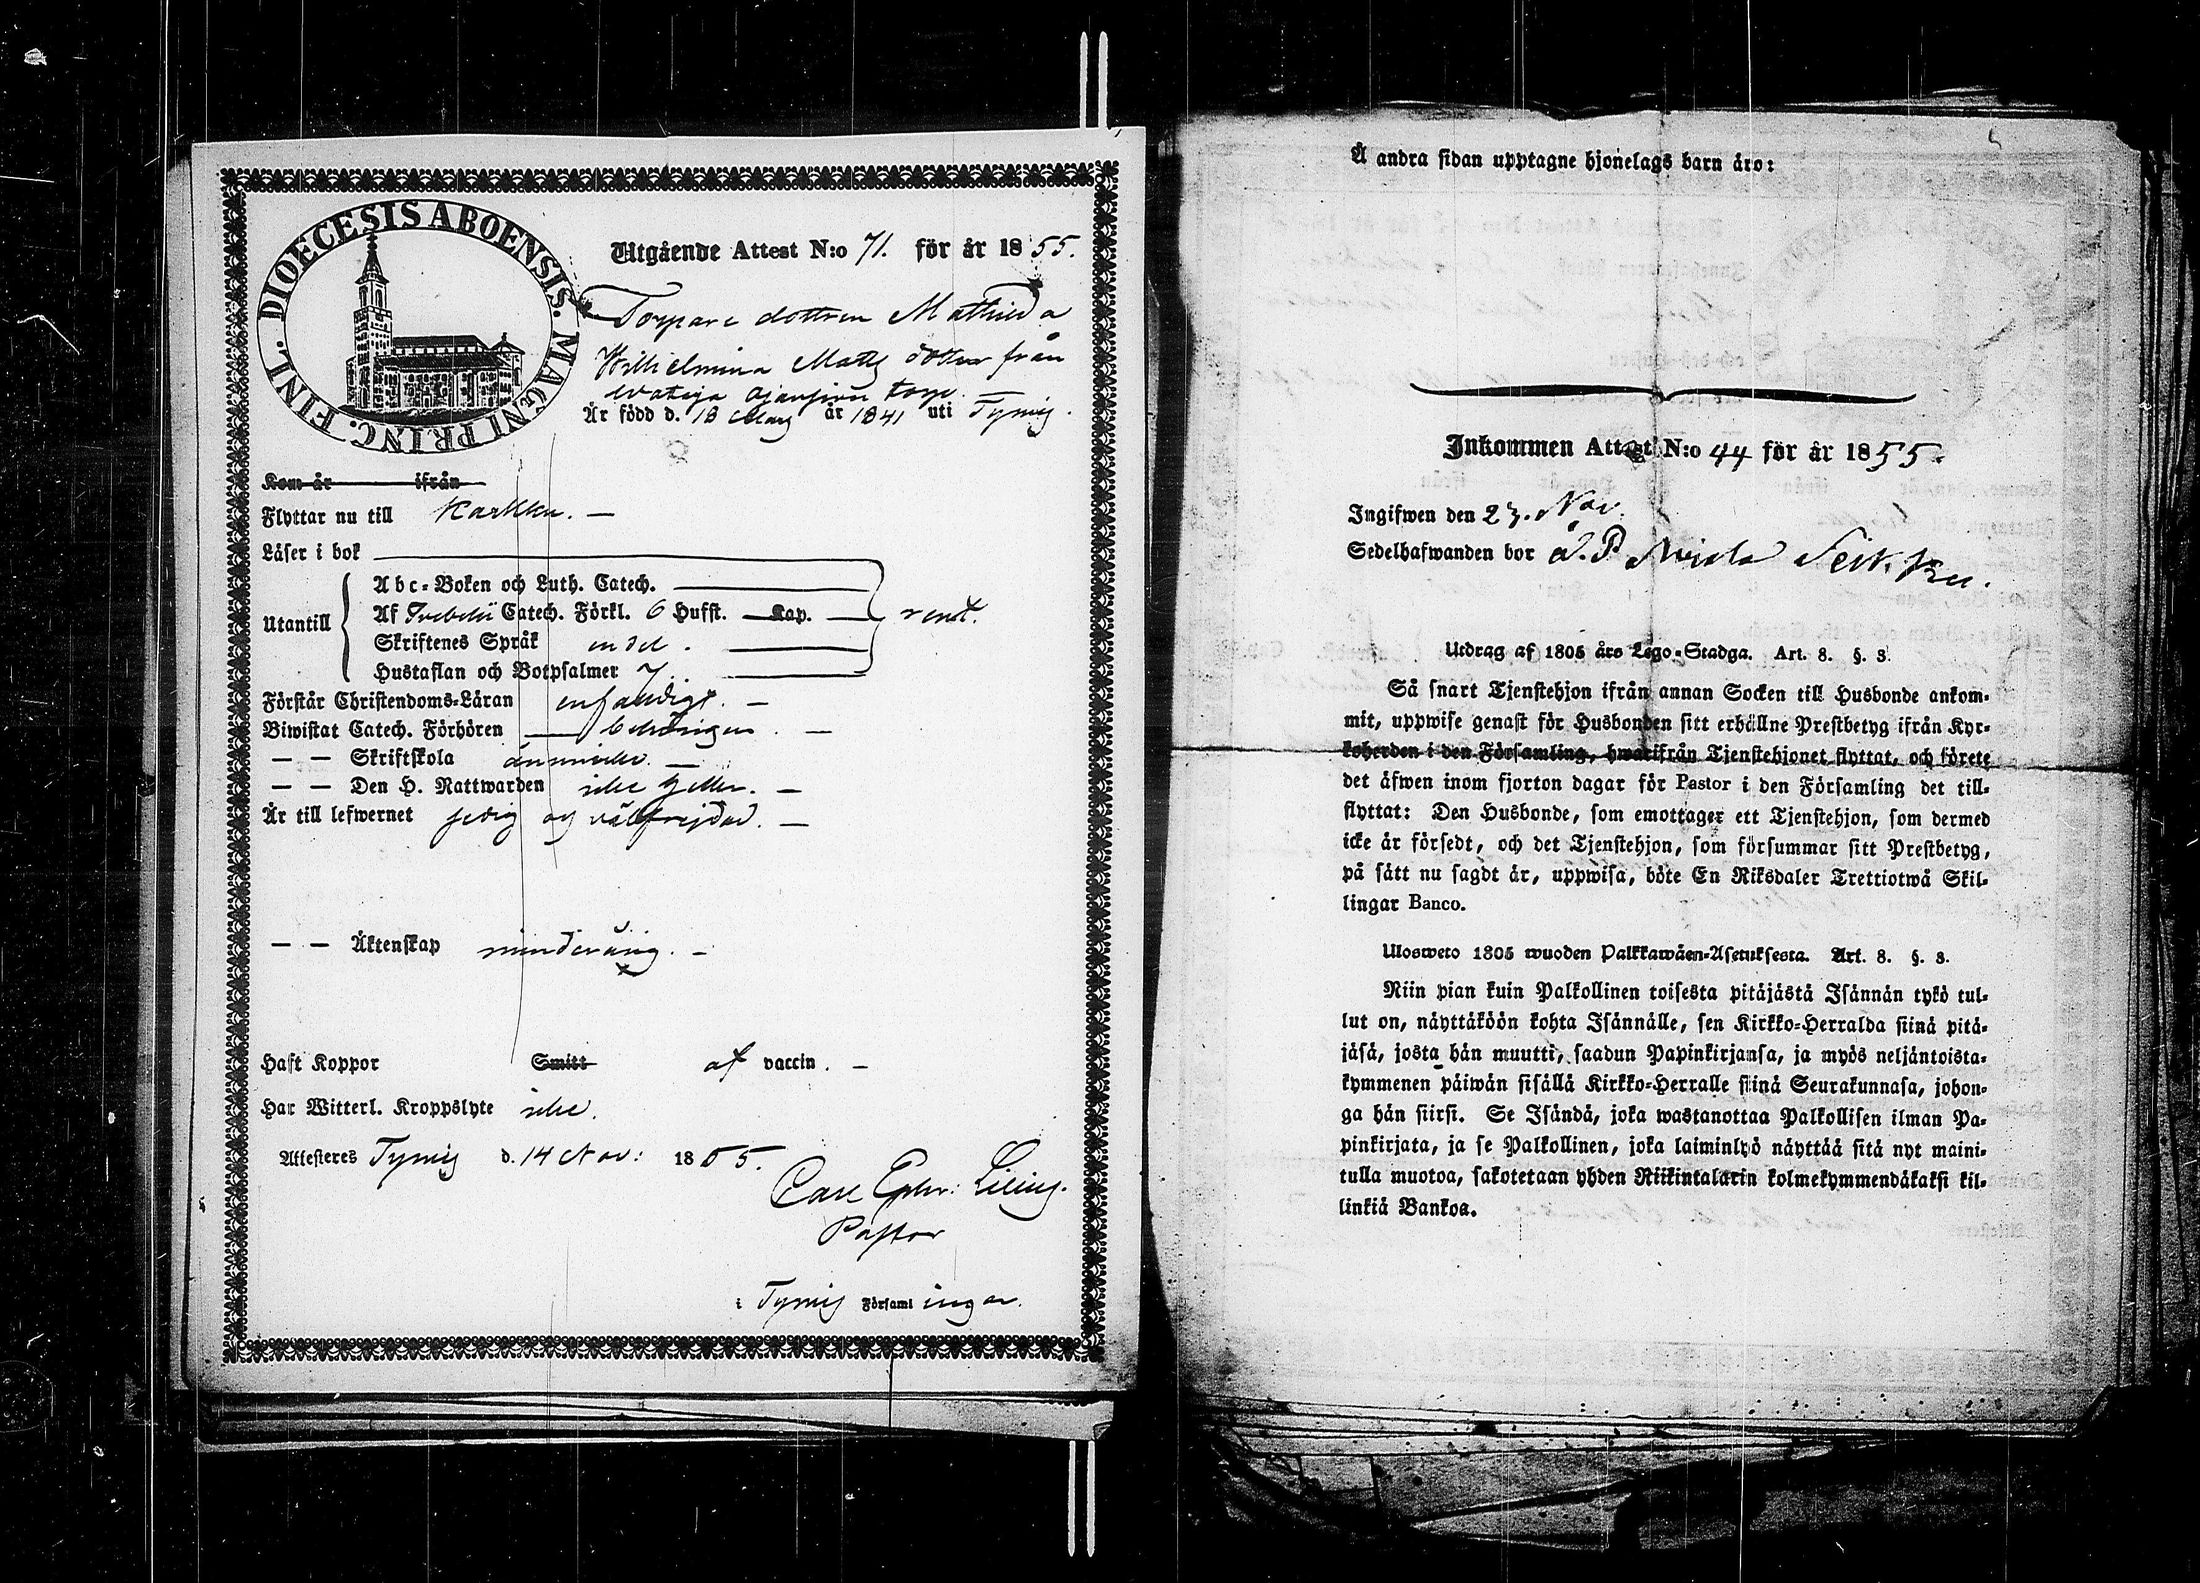 DIOECESIS ABOENSIS. MAGNI PRINC. FINL.
Utgående Attest N:o 71. för år 1855.
Torpare dottren Mathilda
Wilhelmina Matts dotter från
torp.
Är född d. 18 Maij år 1841 uti Tyrvis.
Kom år ifrån
Flyttar nu till Karkku. —
Läser i bok
Utantill
Abc-Boken och Luth. Catech.
Af Svebelii Catech. Förkl. 6 Hufst. — Kap. — rent.
Skriftenes Språk en del.
Hustaflan och Botpsalmer 7
Förstår Christendoms-Läran enfaldigt. —
Biwistat Catech. Förhören — behörigen. —
— — Skriftskola ännu icke. —
— — Den H. Nattwarden icke heller. —
Är till lefwernet sedig och välfrejdad. —
— — Äktenskap minderårig. —
Haft Koppor Smitt af vaccin. —
Har Witterl. Kroppslyte icke.
Attesteres Tyrvis d. 14 Nov: 1855.
Carl Ephr: Lilius.
Pastor
i Tyrvis Församlingar.
Å andra sidan upptagne hjonelags barn äro:
Inkommen Attest N:o 44 för år 1855.
Ingifwen den 23. Nov.
Sedelhafwanden bor å P.
Utdrag af 1805 års Lego-Stadga. Art. 8. §. 3.
Så snart Tjenstehjon ifrån annan Socken till Husbonde ankom-
mit, uppwise genast för Husbonden sitt erhållne Prestbetyg ifrån Kyr-
koherden i den Församling, hwarifrån Tjenstehjonet flyttat, och förete
det äfwen inom fjorton dagar för Pastor i den Församling det till-
flyttat: Den Husbonde, som emottager ett Tjenstehjon, som dermed
icke är försedt, och det Tjenstehjon, som försummar sitt Prestbetyg,
på sätt nu sagdt är, uppwisa, böte En Riksdaler Trettiotwå Skil-
lingar Banco.
Ulosweto 1805 wuoden Palkkawäen-Asetuksesta. Art. 8. §. 3.
Niin pian kuin Palkollinen toisesta pitäjästä Isännän tykö tul-
lut on, näyttäköön kohta Isännälle, sen Kirkko-Herralda siinä pitä-
jäsä, josta hän muutti, saadun Papinkirjansa, ja myös neljäntoista-
kymmenen päiwän sisällä Kirkko-Herralle siinä Seurakunnasa, johon-
ga hän siirsi. Se Isändä, joka wastanottaa Palkollisen ilman Pa-
pinkirjata, ja se Palkollinen, joka laiminlyö näyttää sitä nyt maini-
tulla muotoa, sakotetaan yhden Riikintalarin kolmekymmendäkaksi kil-
linkiä Bankoa.